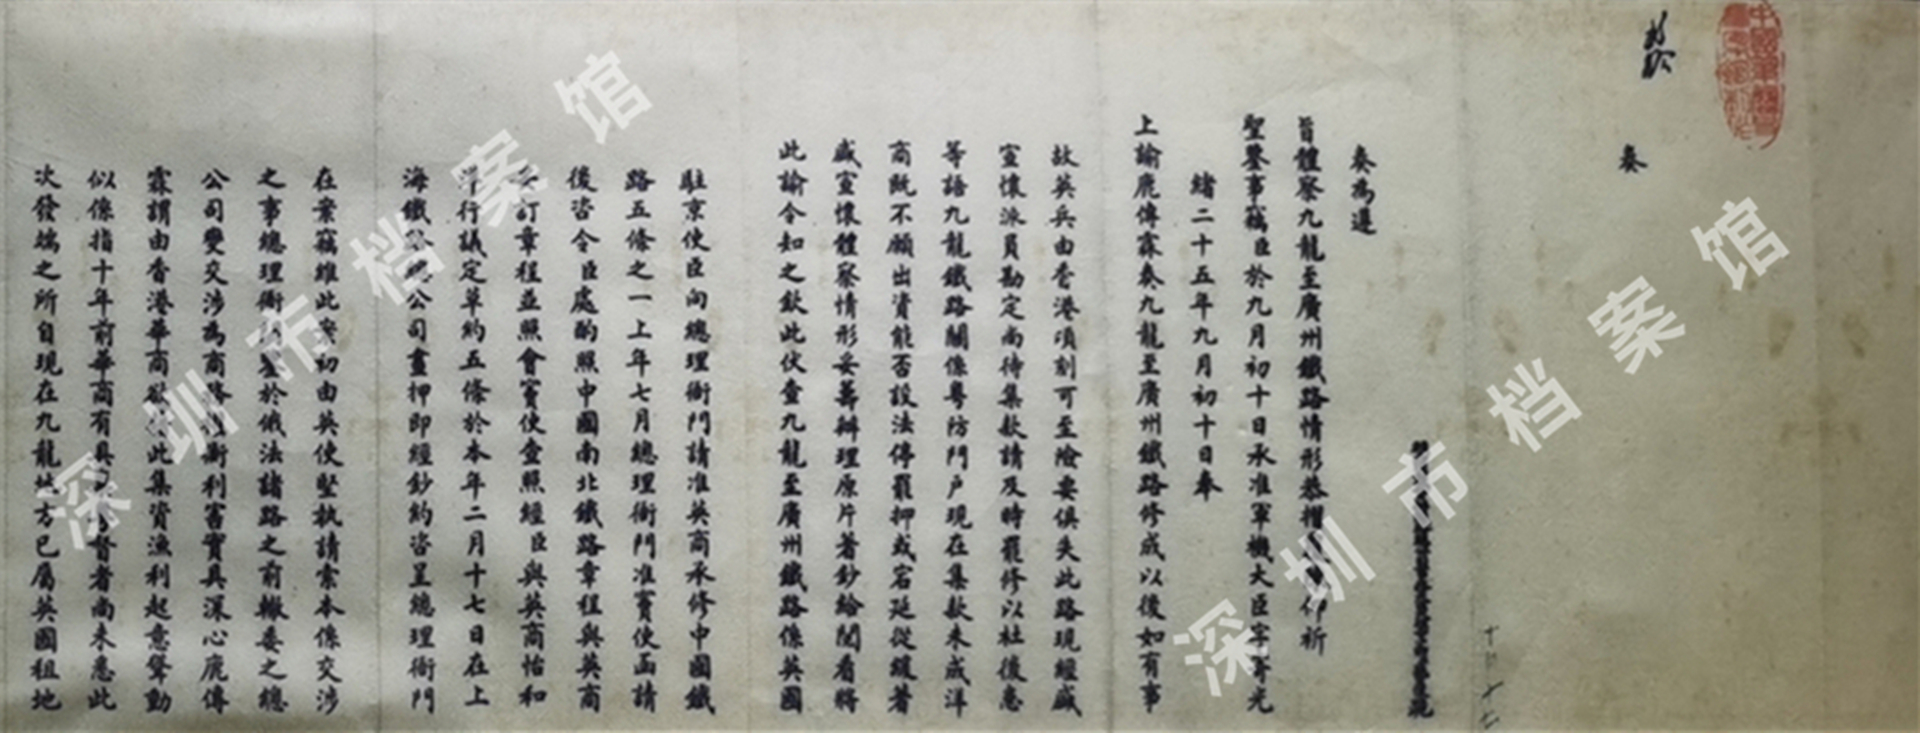 奏
奏為遵
旨體察九龍至廣州鐵路情形恭摺仰祈
聖鑒事竊臣於九月初十日承准軍機大臣字寄光
緒二十五年九月初十日奉
上諭鹿傳霖奏九龍至廣州鐵路修成以後如有事
故英兵由香港頃刻可至險要俱失此路現經盛
宣懷派員勘定尚待集款請及時罷修以杜後患
等語九龍鐵路關係粵防門戶現在集款未成洋
商既不願出資能否設法停罷抑或宕延從緩著
盛宣懷體察情形妥籌辦理原片著鈔給閱看將
此諭令知之欽此伏查九龍至廣州鐵路係英國
駐京使臣向總理衙門請准英商承修中國鐵
路五條之一上年七月總理衙門准竇使函請
後咨令臣處酌照中國南北鐵路章程與英商
妥訂章程並照會竇使查照經臣與英商怡和
洋行議定草約五條於本年二月十七日在上
海鐵路總公司畫押即經鈔約咨呈總理衙門
在案竊維此案初由英使堅執請索本係交涉
之事總理衙門鑒於俄法諸路之前轍委之總
公司變交涉為商路權衡利害實具深心鹿傳
霖謂由香港華商欲此集資漁利起意聳動
似係指十年前華商有具督者尚未悉此
次發端之所自現在九龍地方已屬英國租地
深圳市档案馆
深圳市档案馆